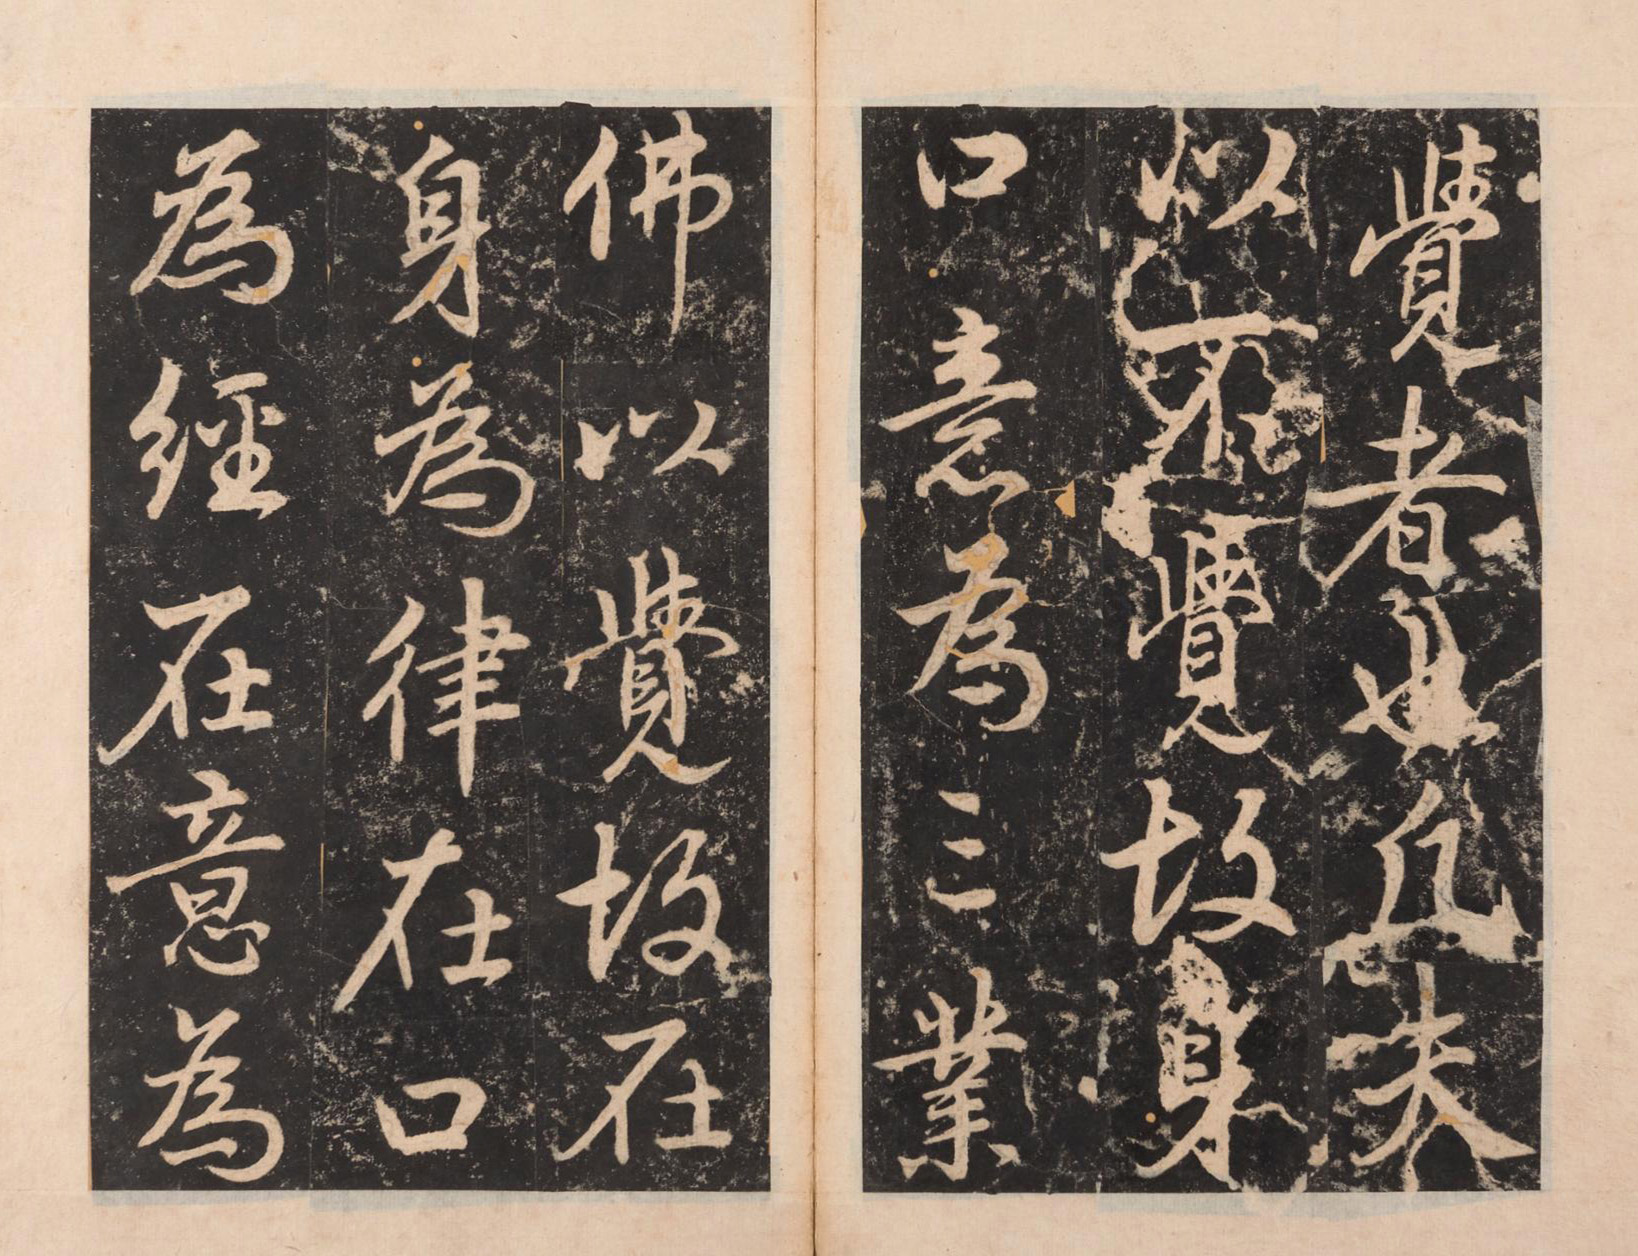 覺者也凡夫
以不覺故身
口意為三業
佛以覺故在
身為律在口
為經在意為